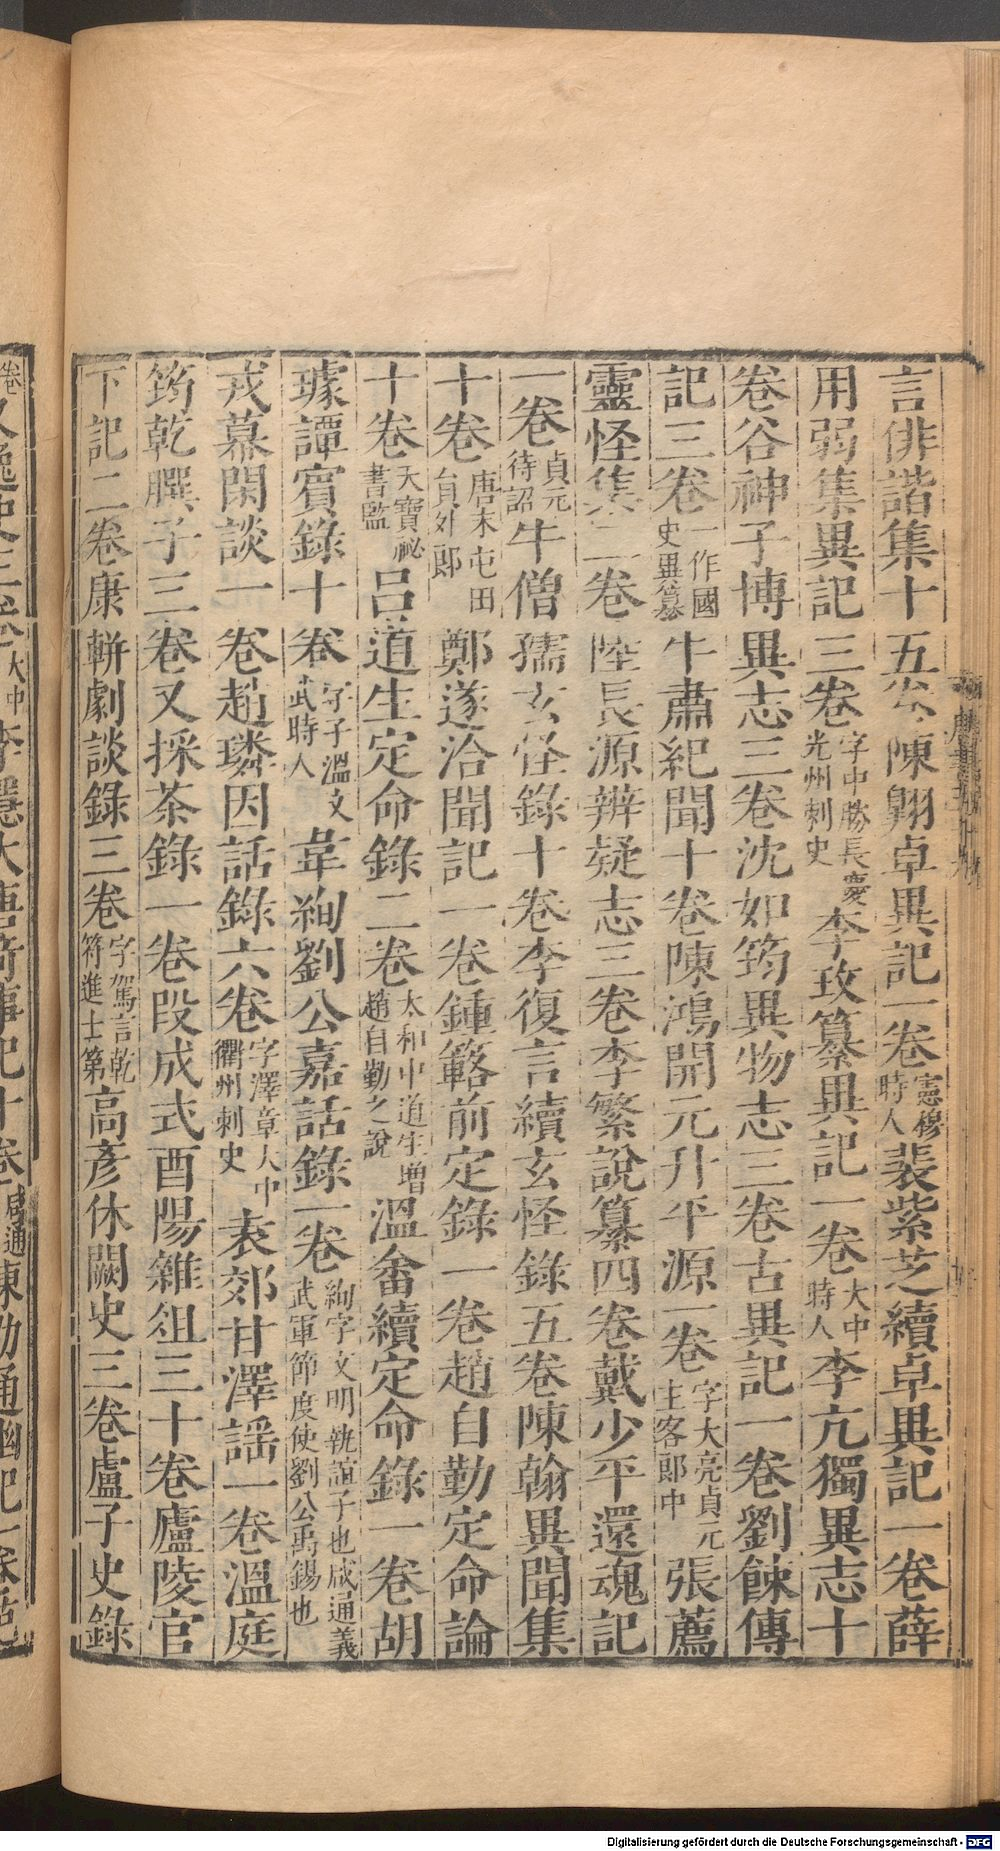 言俳諧集十五卷陳翺卓異記一卷憲穆時人裴紫芝續卓異記一卷薛
用弱集異記三卷字中勝長慶光州刺史李玫纂異記一卷大中時人李亢獨異志十
卷谷神子博異志三卷沈如筠異物志三卷古異記一卷劉餗傳
記三卷一作國史異纂牛肅紀聞十卷陳鴻開元升平源一卷字大亮貞元主客郎中張薦
靈怪集二卷陸長源辨疑志三卷李繁說纂四卷戴少平還魂記
一卷貞元待詔牛僧孺玄怪錄十卷李復言續玄怪錄五卷陳翰異聞集
十卷唐末屯田員外郎鄭遂洽聞記一卷鍾簵前定錄一卷趙自勤定命論
十卷天寶祕書監呂道生定命錄二卷太和中道生增趙自勤之說溫畬續定命錄一卷胡
璩譚賓錄十卷字子溫文武時人韋絢劉公嘉話錄一卷絢字文明執誼子也咸通義武軍節度使劉公禹錫也
戎幕閑談一卷趙璘因話錄六卷字澤章大中衢州刺史袁郊甘澤謡一卷溫庭
筠乾𦠆子三卷又採茶錄一卷段成式酉陽雜俎三十卷廬陵官
下記二卷康軿劇談錄三卷字駕言乾符進士第高彥休闕史三卷盧子史錄
Digitalisierung gefördert durch die Deutsche Forschungsgemeinschaft - DFG